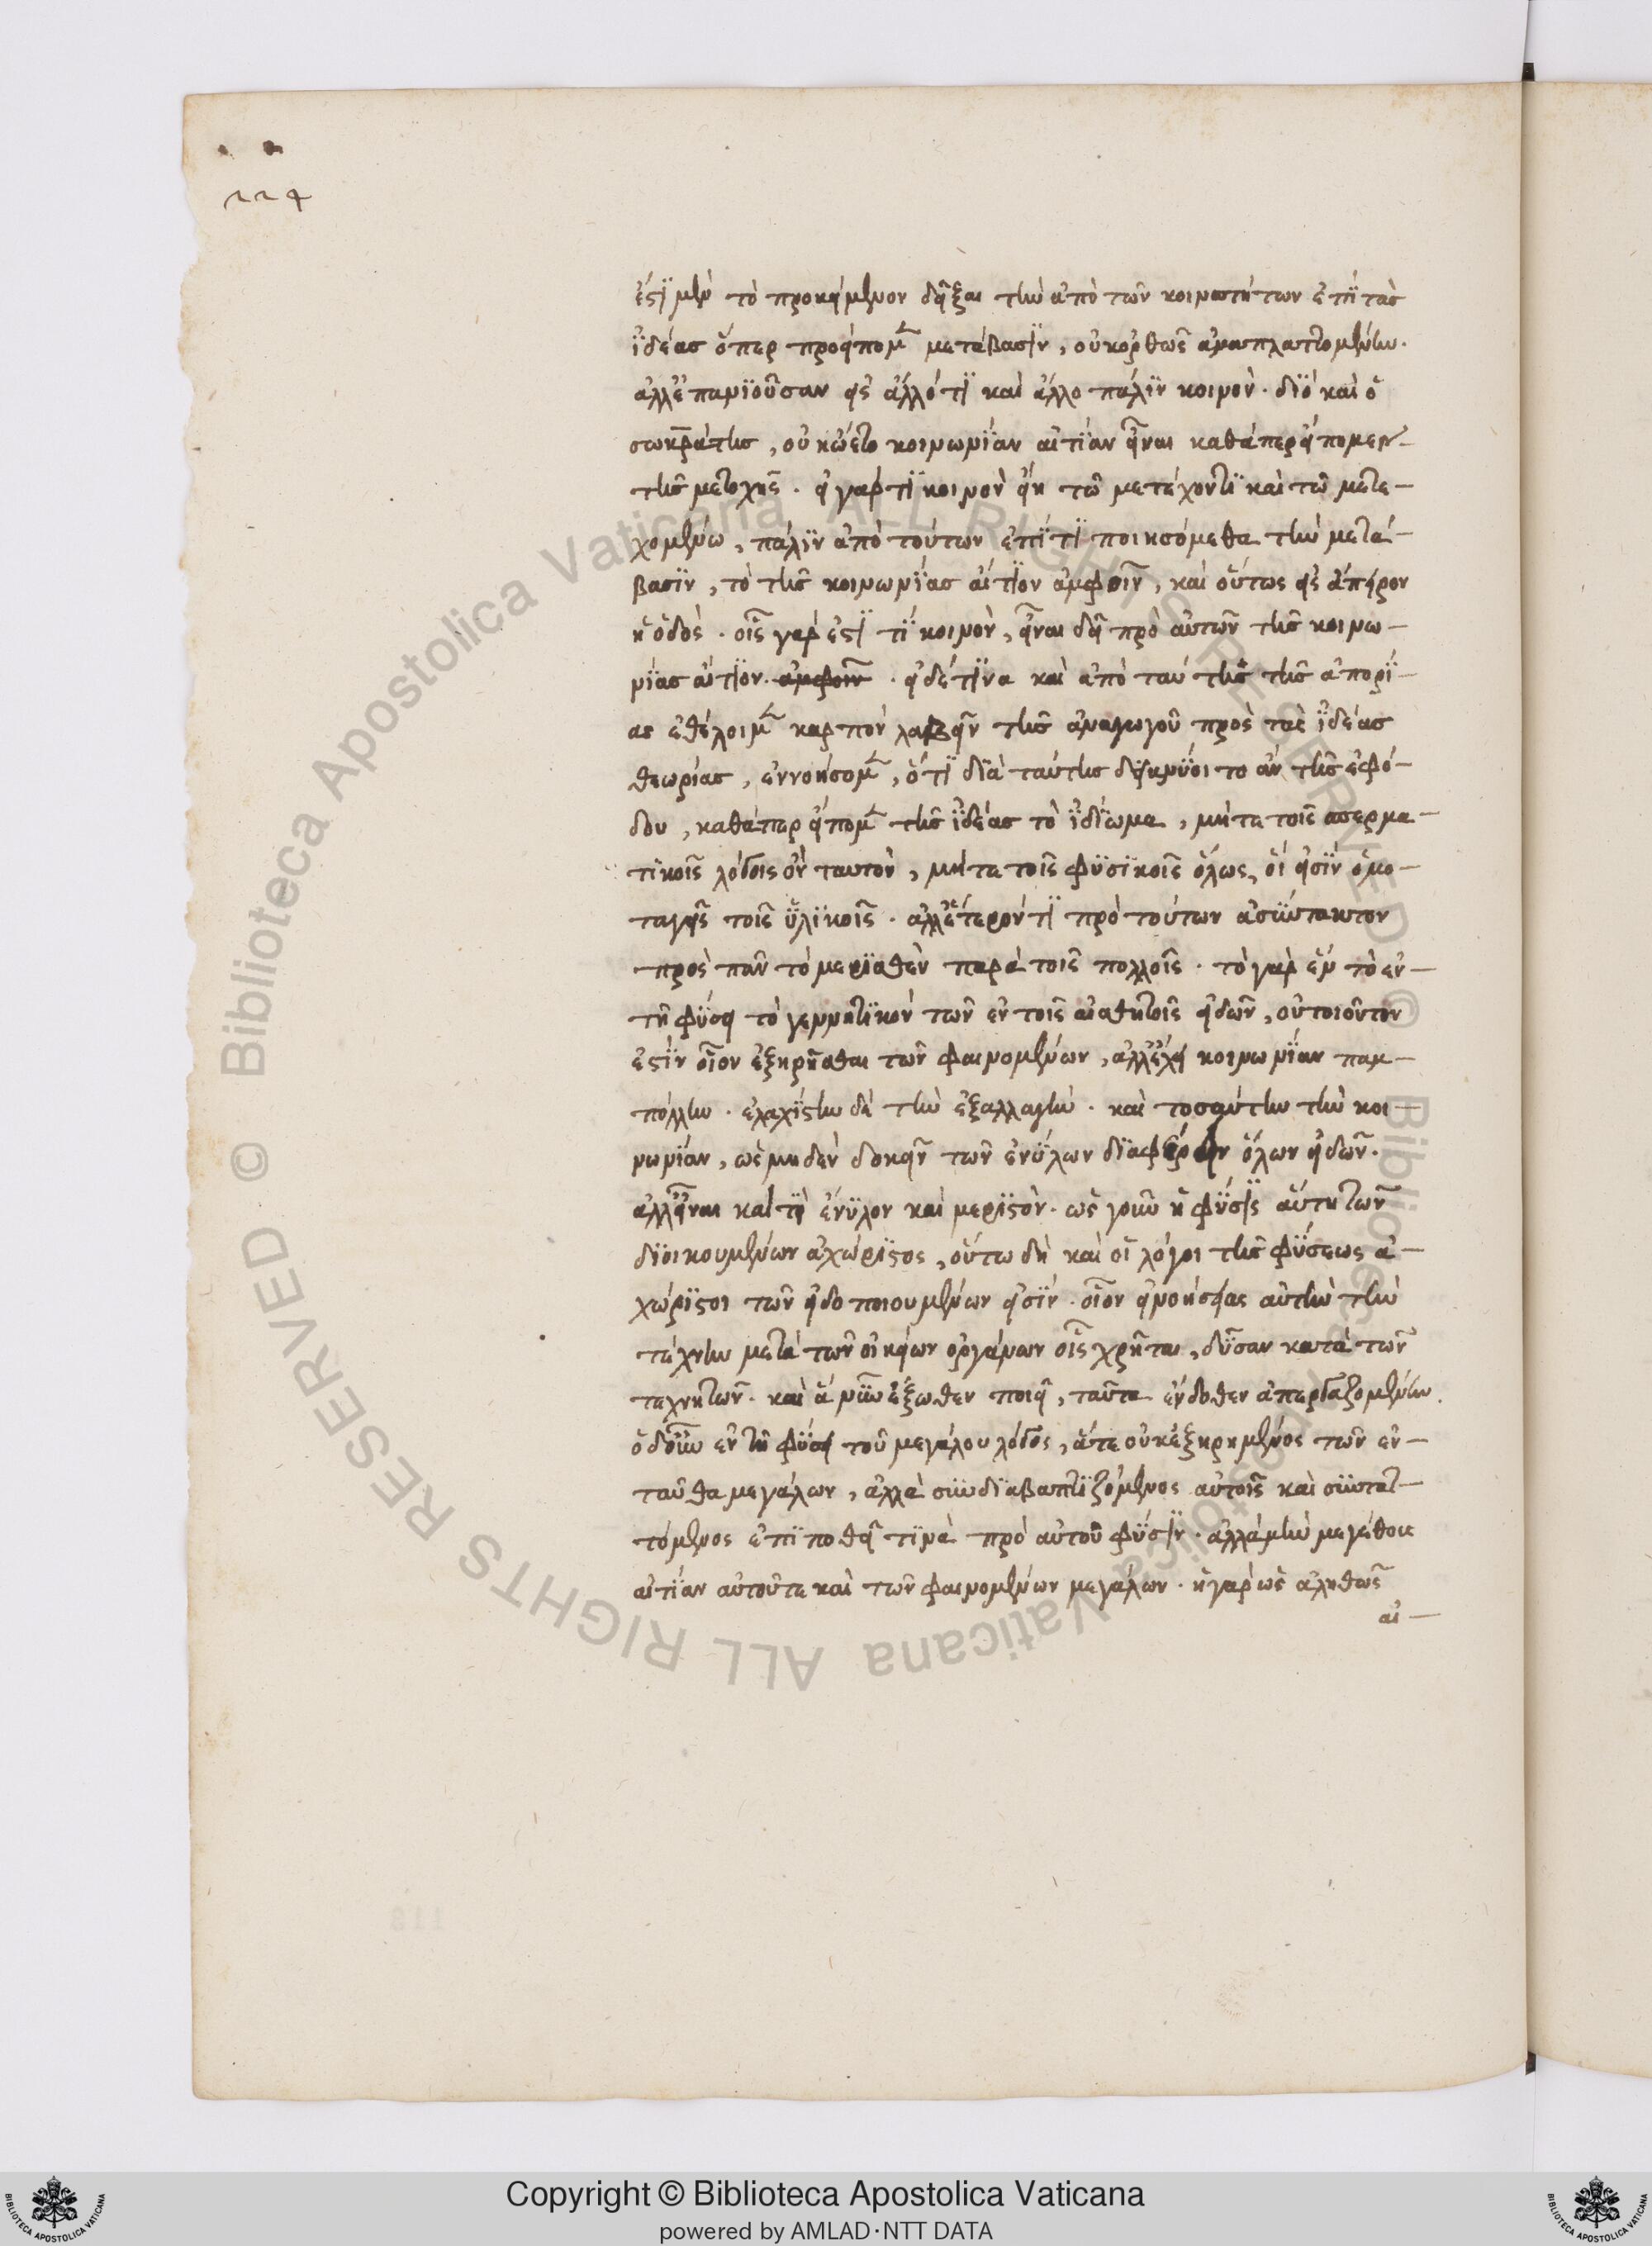 224
ἐστὶ μὲν τὸ προκείμενον δεῖξαι τὴν ἀπὸ τῶν κοινοτήτων ἐπὶ τὰς
ἰδέας ὅπερ προείπομεν μετάβασιν, οὐκ ὀρθῶς ἀναπλαττομένην.
ἀλλ' ἐπανιοῦσαν εἰς ἄλλό τι καὶ ἄλλο πάλιν κοινόν. διὸ καὶ ὁ
σωκράτης, οὐκ ᾤετο κοινωνίαν αἰτίαν εἶναι καθάπερ εἴπομεν
τῆς μετοχῆς. εἰ γάρ τι κοινὸν εἴη τῶ μετέχοντι καὶ τῶ μετε-
χομένω, πάλιν ἀπὸ τούτων ἐπί τι ποιησόμεθα τὴν μετά-
βασιν, τὸ τῆς κοινωνίας αἴτιον ἀμφοῖν, καὶ οὕτως εἰς ἄπειρον
ἡ ὁδὸς. οἷς γάρ ἐστί τι κοινὸν, εἶναι δεῖ πρὸ αὐτῶν τῆς κοινω-
νίας αἴτιον. ἀμφοῖν. εἰ δέ τινα καὶ ἀπὸ ταύτης τῆς ἀπορί-
ας ἐθέλοιμεν καρπὸν λαβεῖν τῆς ἀναγωγοῦ πρὸς τὰς ἰδέας
θεωρίας, ἐννοήσομεν, ὅτι διὰ ταύτης δεικνύοιτο ἂν τῆς ἐφό-
δου, καθάπερ εἴπομεν τῆς ἰδέας τὸ ἰδίωμα, μήτε τοῖς σπερμα-
τικοῖς λόγοις ὂν ταυτὸν, μήτε τοῖς φυσικοῖς ὅλως, οἵ εἰσὶν ὁμο-
ταγεῖς τοῖς ὑλικοῖς. ἀλλ' ἕτερόν τι πρὸ τούτων ἀσύντακτον
πρὸς πᾶν τὸ μερισθὲν παρὰ τοῖς πολλοῖς. τὸ γὰρ ἓν τὸ ἐν
τῆ φύσει τὸ γεννητικὸν τῶν ἐν τοῖς αἰσθητοῖς εἰδῶν, οὐ τοιοῦτόν
ἐστὶν οἷον ἐξηρῆσθαι τῶν φαινομένων, ἀλλ' ἔχει κοινωνίαν παμ-
πόλλην. ἐλαχίστην δὲ τὴν ἐξαλλαγὴν. καὶ τοσαύτην τὴν κοι-
νωνίαν, ὡς μηδὲν δοκεῖν τῶν ἐνύλων διαφέρειν ὅλων εἰδῶν.
ἀλλ' εἶναι καί τι ἔνυλον καὶ μεριστὸν. ὡς γοῦν ἡ φύσις αὕτη τῶν
διοικουμένων ἀχώριστος, οὕτω δὴ καὶ οἱ λόγοι τῆς φύσεως ἀ-
χώριστοι τῶν εἰδοποιουμένων εἰσὶν. οἷον εἰ νοήσειας αὐτὴν τὴν
τέχνην μετὰ τῶν οἰκείων ὀργάνων οἷς χρῆται, δῦσαν κατὰ τῶν
τεχνητῶν. καὶ ἃ νῦν ἔξωθεν ποιεῖ, ταῦτα ἔνδοθεν ἀπεργαζομένην.
ὁ δ' οὖν ἐν τῆ φύσει τοῦ μεγάλου λόγος, ἅτε οὐκ ἐξηρημένος τῶν ἐν-
ταῦθα μεγάλων, ἀλλὰ συνδιαβαπτιζόμενος αὐτοῖς καὶ συντατ-
τόμενος ἐπιποθεῖ τινὰ πρὸ αὐτοῦ φύσιν. ἀλλὰ μὴν μεγέθους
αἰτίαν αὐτοῦ τε καὶ τῶν φαινομένων μεγάλων. ἡ γὰρ ὡς ἀληθῶς
αἰ-
Copyright © Biblioteca Apostolica Vaticana
powered by AMLAD·NTT DATA
© Biblioteca Apostolica Vaticana ALL RIGHTS RESERVED
© Biblioteca Apostolica Vaticana ALL RIGHTS RESERVED
BIBLIOTECA APOSTOLICA VATICANA
BIBLIOTECA APOSTOLICA VATICANA